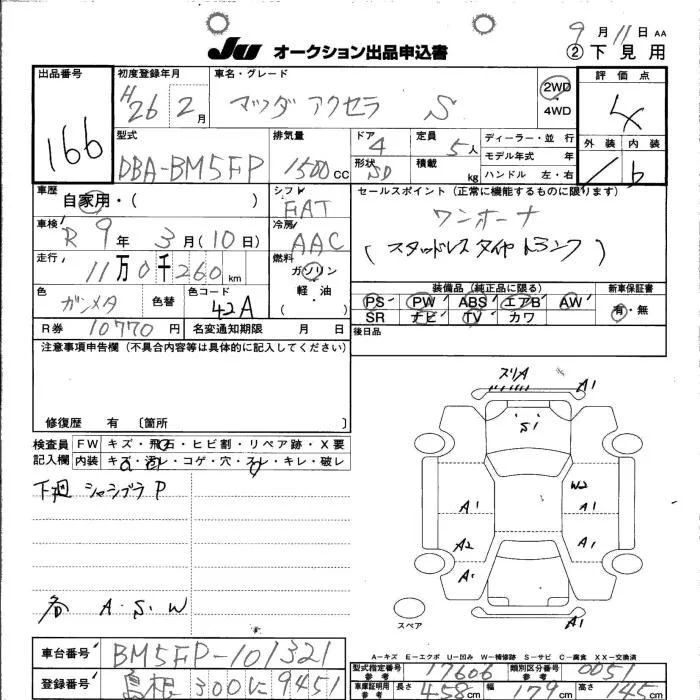 9月11日 AA
JU オークション出品申込書
②下見用
出品番号
166
初度登録年月
H26 2月
車名・グレード
マツダ アクセラ S
2WD
4WD
評価点
4
外装 内装
b
型式
DBA-BM5FP
排気量
1500cc
ドア
4
形状
SD
定員
5人
積載
kg
ディーラー・並行
モデル年式 年
ハンドル 左・右
車歴
自家用・( )
シフト
FAT
セールスポイント(正常に機能するものに限ります)
ワンオーナ
(スタッドレスタイヤトランク)
車検
R9年3月(10日)
冷房
AAC
走行
11万0千260km
燃料
ガソリン
軽・油
( )
色
ガンメタ
色替
色コード
42A
装備品(純正品に限る)
PS PW ABS エアB AW
SR ナビ TV カワ
新車保証書
有・無
R券 10770円
名変通知期限 月 日
後日品
注意事項申告欄(不具合内容等は具体的に記入してください)
修復歴 有 〔箇所 〕
検査員記入欄
FW キズ・飛石・ヒビ割・リペア跡・X要
内装 キズ・汚レ・コゲ・穴・スレ・キレ・破レ
下廻 シャシブラ P
各 A.S.W
ズリA
A1
S1
W2
A1
A1
A2
A1
A1
スペア
A－キズ E－エクボ U－凹み W－補修跡 S－サビ C－腐食 XX－交換済
車台番号
BM5FP-101321
登録番号
島根 300 に 9451
型式指定番号
参考
17606
類別区分番号
参考
0051
車庫証明用
参考
長さ 458cm
幅 179cm
高さ 145cm